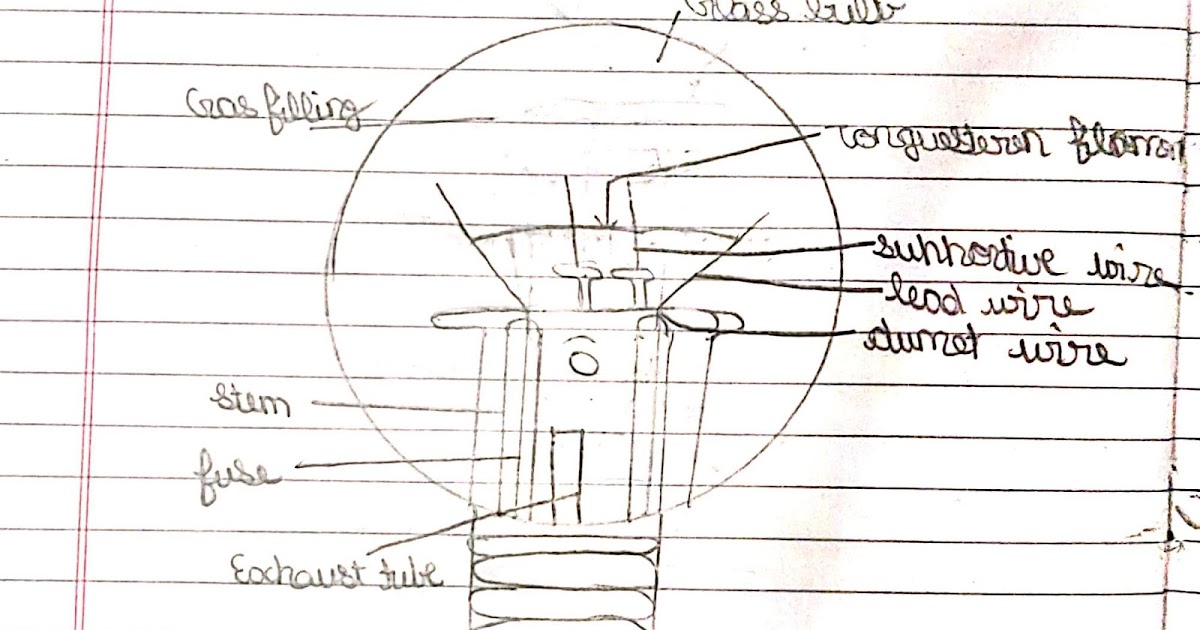 Glass bulb
Gas filling
Tonguesteren filament
supportive wire
lead wire
dumet wire
stem
fuse
Exchaust tube